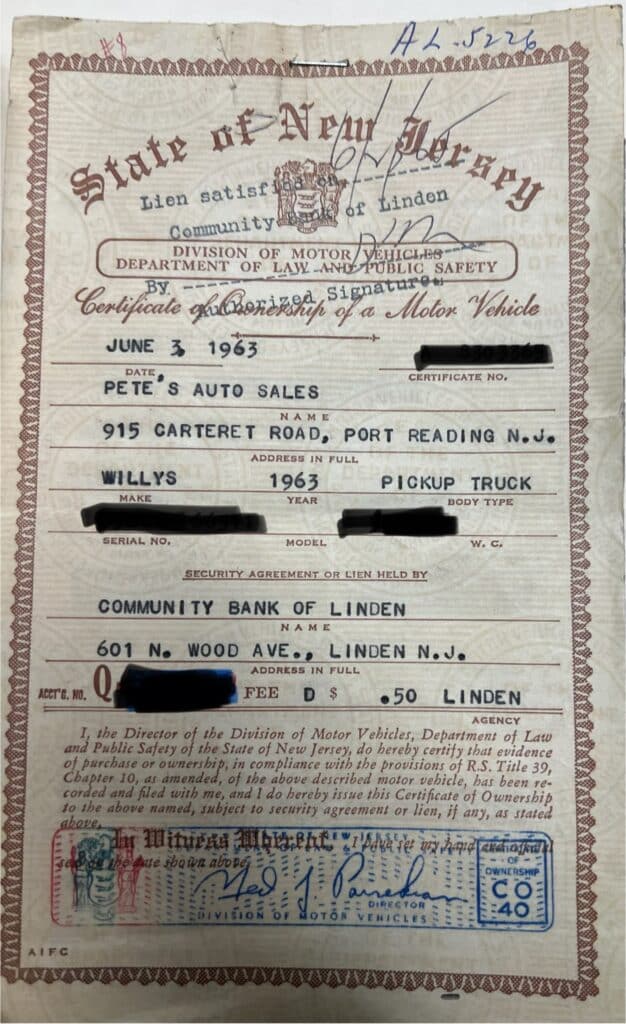 #8 AL-5226
State of New Jersey
Lien satisfied on
Community Bank of Linden
DIVISION OF MOTOR VEHICLES
DEPARTMENT OF LAW AND PUBLIC SAFETY
By
Authorized Signature.
Certificate of Ownership of a Motor Vehicle
JUNE 3, 1963
DATE CERTIFICATE NO.
PETE'S AUTO SALES
NAME
915 CARTERET ROAD, PORT READING N.J.
ADDRESS IN FULL
WILLYS 1963 PICKUP TRUCK
MAKE YEAR BODY TYPE
SERIAL NO. MODEL W. C.
SECURITY AGREEMENT OR LIEN HELD BY
COMMUNITY BANK OF LINDEN
NAME
601 N. WOOD AVE., LINDEN N.J.
ADDRESS IN FULL
ACCT'G. NO. Q FEE D $ .50 LINDEN
AGENCY
I, the Director of the Division of Motor Vehicles, Department of Law
and Public Safety of the State of New Jersey, do hereby certify that evidence
of purchase or ownership, in compliance with the provisions of R.S. Title 39,
Chapter 10, as amended, of the above described motor vehicle, has been re-
corded and filed with me, and I do hereby issue this Certificate of Ownership
to the above named, subject to security agreement or lien, if any, as stated
above.
In Witness Whereof, I have set my hand and official
seal on the date shown above.
NEW JERSEY
OF
OWNERSHIP
CO
40
DIRECTOR
DIVISION OF MOTOR VEHICLES
AIFC